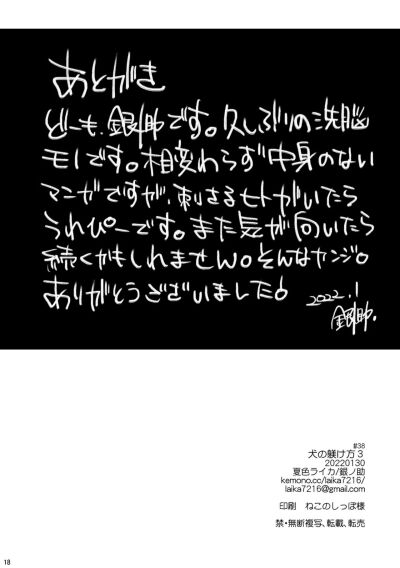 あとがき
どーも、銀助です。久しぶりの洗脳
モノです。相変わらず中身のない
マンガですが、刺さるヒトがいたら
うれぴーです。また気が向いたら
続くかもしれません。そんなカンジ。
ありがとうございました。
2022.1
銀助.
#38
犬の躾け方３
20220130
夏色ライカ/銀ノ助
kemono.cc/laika7216/
laika7216@gmail.com
印刷　ねこのしっぽ様
禁・無断複写、転載、転売
18